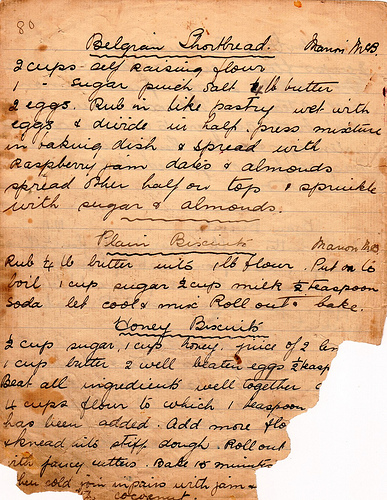 80
Belgian Shortbread. Marion McB.
2 cups self raising flour
1 " sugar pinch salt 1/4 lb butter
2 eggs. Rub in like pastry wet with
eggs & divide in half. press mixture
in baking dish & spread with
raspberry jam dates & almonds
spread other half on top & sprinkle
with sugar & almonds.
Plain Biscuits Marion McB
Rub 1/4 lb butter into 1 lb flour. Put on to
boil 1 cup sugar 1/2 cup milk 1/2 teaspoon
soda let cool & mix Roll out & bake.
Honey Biscuits
1/2 cup sugar, 1 cup honey. juice of 2 lem
1 cup butter 2 well beaten eggs 1/2 teasp
Beat all ingredients well together
4 cups flour to which 1 teaspoon
has been added. Add more flo
& knead into stiff dough Roll out
ith fancy cutters. Bake 15 minutes
hen cold join in pairs with jam &
cocoanut.